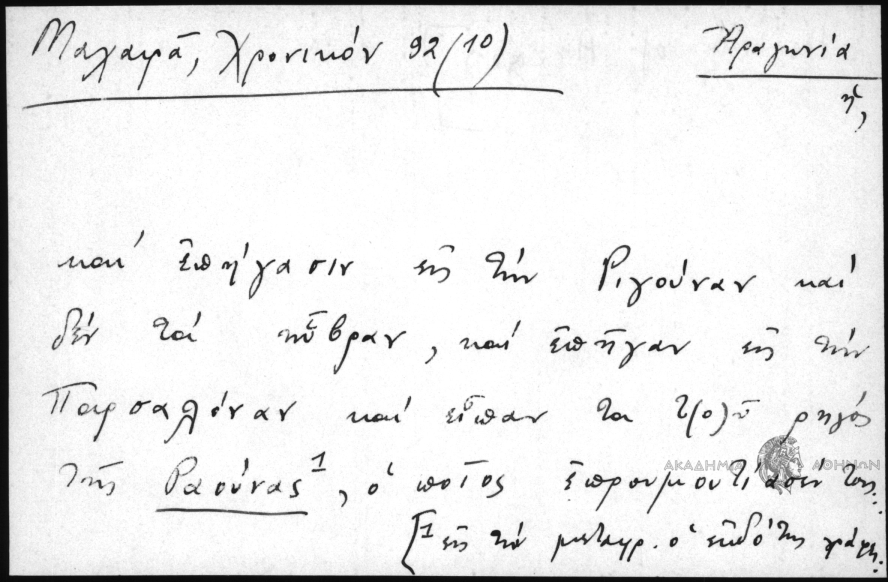 Μαχαιρᾶ, Χρονικόν 92 (10)
Ἀραγωνία
ἡ,
καί ἐπήγασιν εἰς τήν Ριγούναν καί
δέν τά ηὗβραν, καί ἐπῆγαν εἰς τήν
Παρσαλόναν καί εἶπαν το τ(ο)ῦ ρηγός
τῆς Ραούνας¹, ὁ ποῖος ἐπρουμουτίασέν τους:
ΑΚΑΔΗΜΙΑ ΑΘΗΝΩΝ
[¹ εἰς τήν μεταφρ. ὁ ἐκδότης γράφει: